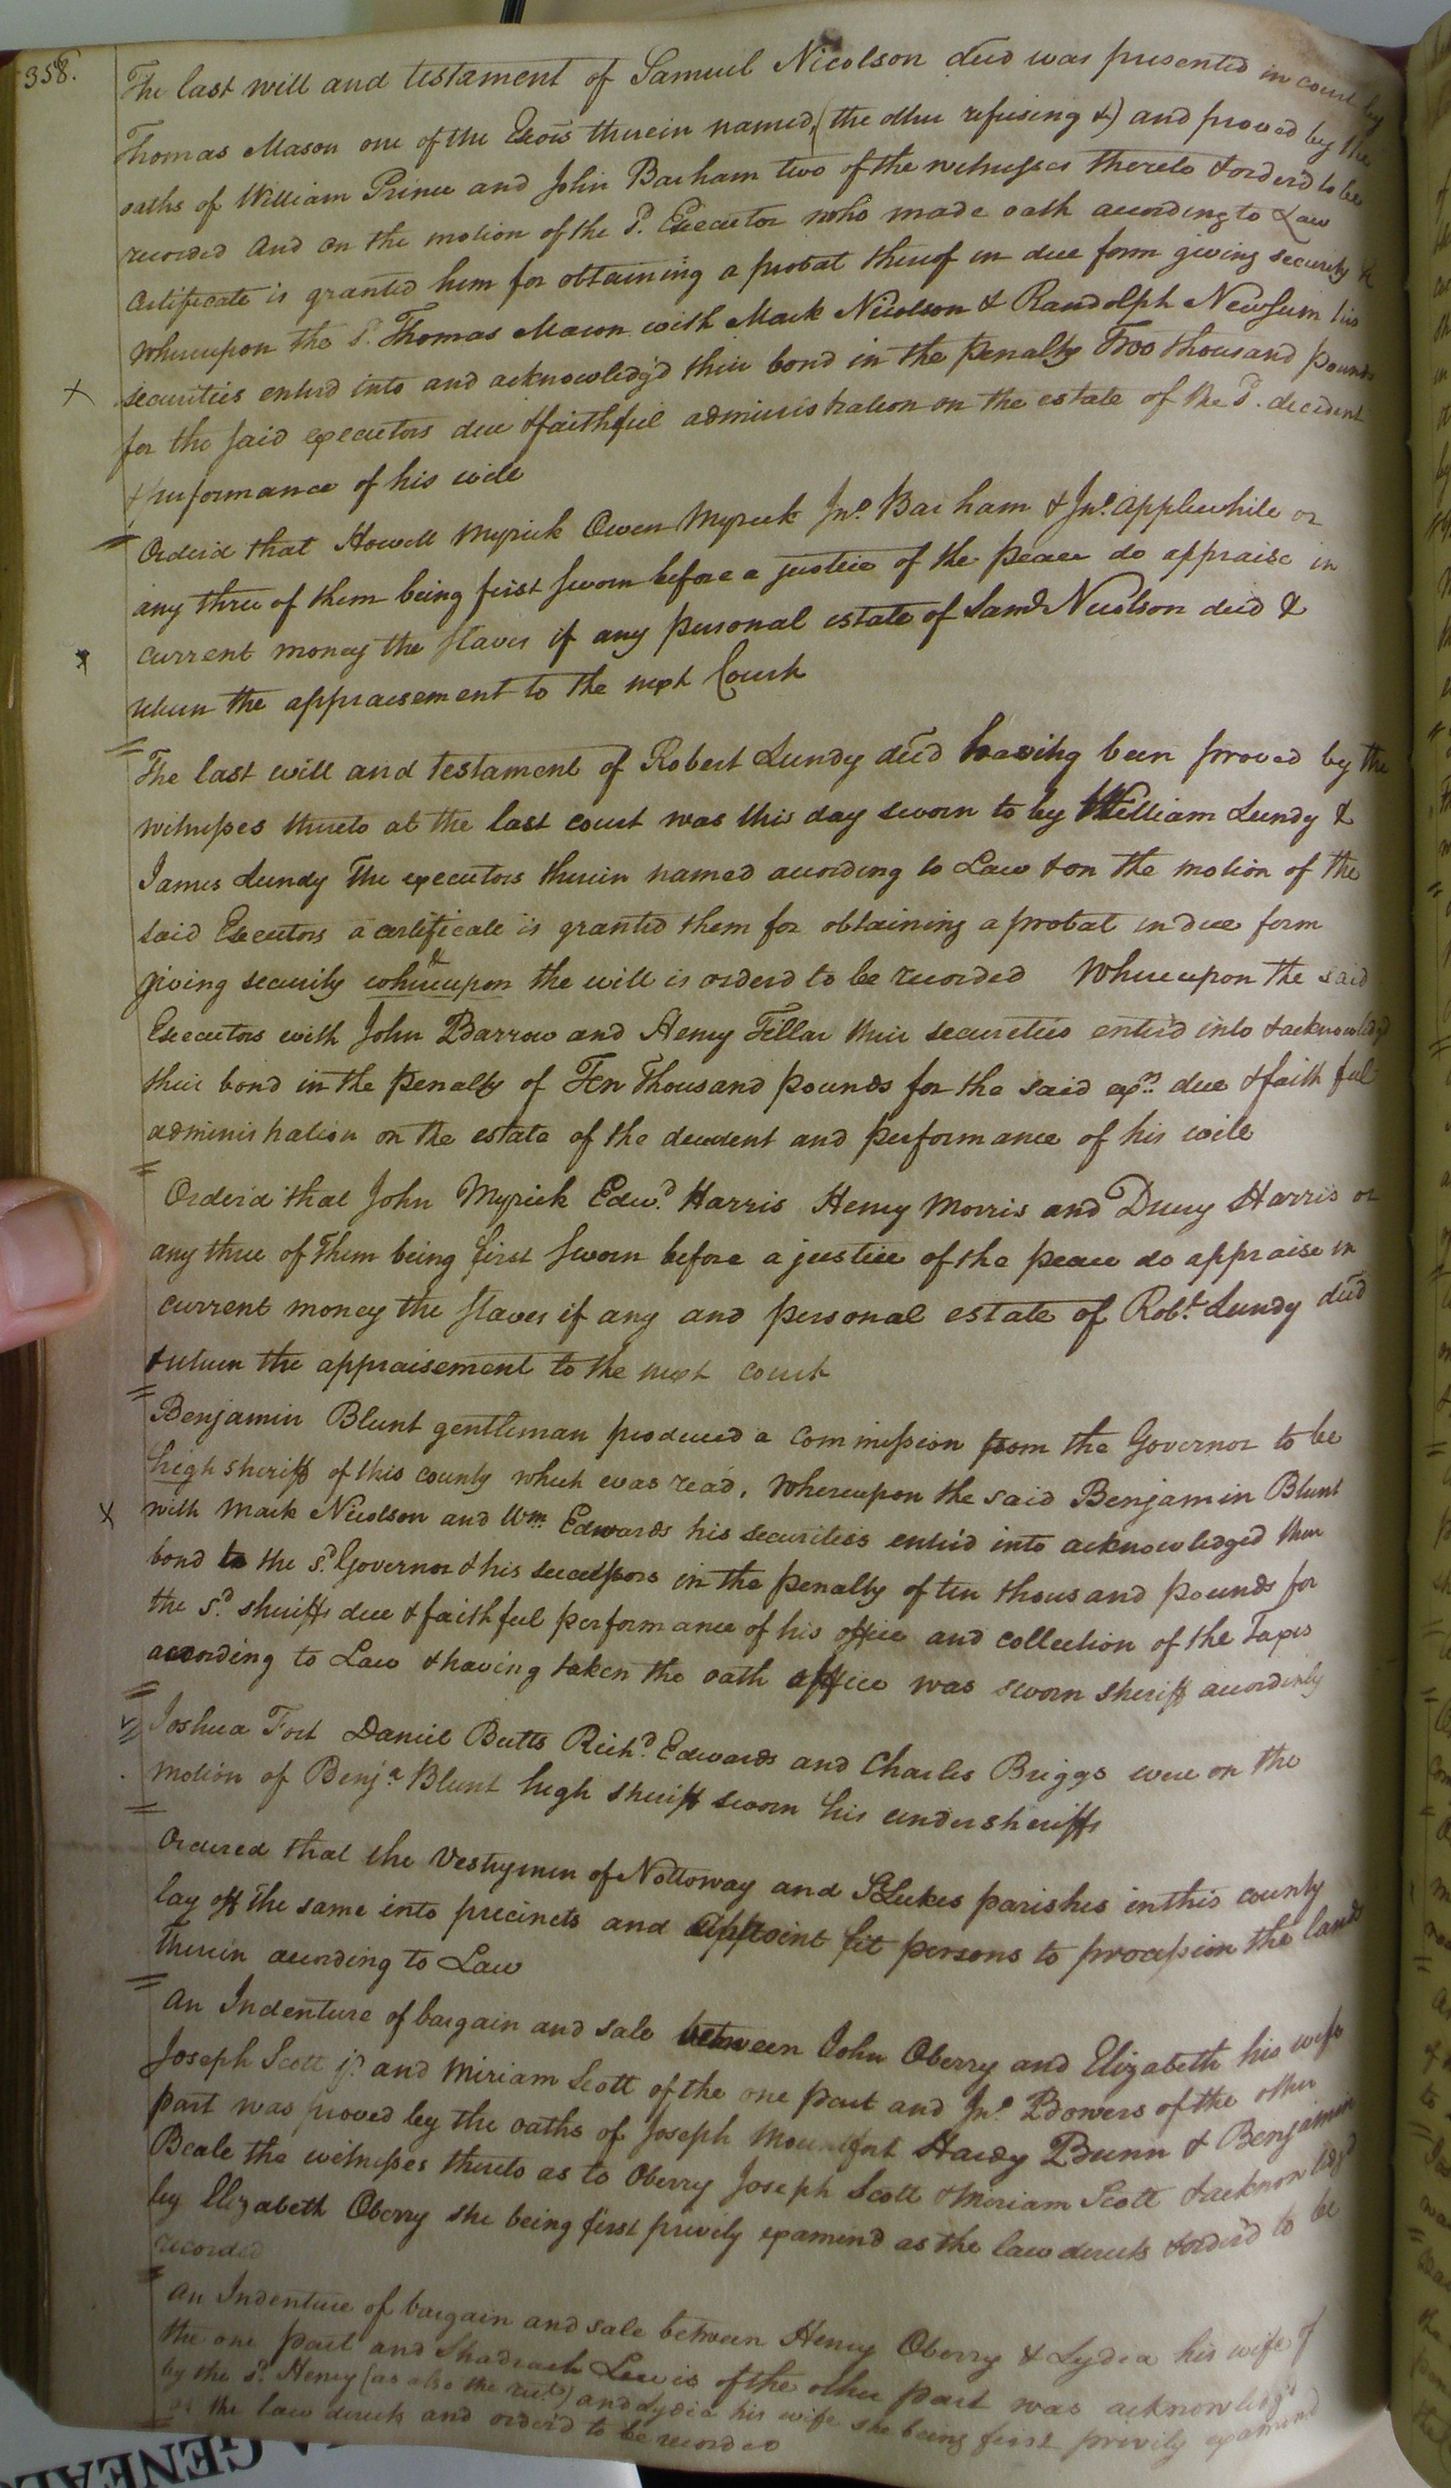 358.
The last will and testament of Samuel Nicolson decd was presented in court by
Thomas Mason one of the Exors therein named, (the other refusing &) and proved by the
oaths of William Prince and John Barham two of the witnesses thereto & orderd to be
recorded and on the motion of the sd. Executor who made oath according to Law
certificate is granted him for obtaining a probat thereof in due form giving security &
whereupon the sd. Thomas Mason with Mark Nicolson & Randolph Newsum his
securities enterd into and acknowledg'd their bond in the penalty Two thousand pounds
for the said executors due & faithful administration on the estate of the sd. decedent
& performance of his will
Orderd that Howell Myrick Owen Myrick Jno. Barham & Jno. Applewhite or
any three of them being first sworn before a justice of the peace do appraise in
current money the slaves if any personal estate of Saml Nicolson decd &
return the appraisement to the next Court
The last will and testament of Robert Lundy decd having been proved by the
witnesses thereto at the last court was this day sworn to by William Lundy &
James Lundy the executors therein named according to Law & on the motion of the
said Executors a certificate is granted them for obtaining a probat in due form
giving security & whereupon the will is orderd to be recorded Whereupon the said
Executors with John Barrow and Henry Tillar their securities enterd into & acknowledgd
their bond in the penalty of Ten Thousand pounds for the said exrs. due & faithful
administration on the estate of the decedent and performance of his will
Orderd that John Myrick Edwd. Harris Henry Morris and Drury Harris or
any three of them being first sworn before a justice of the peace do appraise in
current money the slaves if any and personal estate of Robt. Lundy decd
& return the appraisement to the next court
Benjamin Blunt gentleman produced a commission from the Governor to be
high sheriff of this county which was read, Whereupon the said Benjamin Blunt
with Mark Nicolson and Wm. Edwards his securities enterd into acknowledged their
bond to the sd. Governor & his successors in the penalty of ten thousand pounds for
the sd. sheriffs due & faithful performance of his office and collection of the Taxes
according to Law & having taken the oath office was sworn sheriff accordingly
Joshua Fort Daniel Butts Richd. Edwards and Charles Briggs were on the
motion of Benja. Blunt high sheriff sworn his undersheriffs
Ordered that the Vestrymen of Nottoway and St Lukes parishes in this county
lay off the same into precincts and appoint fit persons to procession the lands
therein according to Law
An Indenture of bargain and sale between John Oberry and Elizabeth his wife
Joseph Scott jr. and Miriam Scott of the one part and Jno. Bowers of the other
part was proved by the oaths of Joseph Mountfort Hardy Bunn & Benjamin
Beale the witnesses thereto as to Oberry Joseph Scott & Miriam Scott & acknowledgd
by Elizabeth Oberry she being first privily examend as the law directs & orderd to be
recorded
An Indenture of bargain and sale between Henry Oberry & Lydia his wife of
the one part and Shadrach Lewis of the other part was acknowledgd
by the sd. Henry (as also the rect.) and Lydia his wife she being first privily examend
as the law directs and orderd to be recorded
A GENEAL